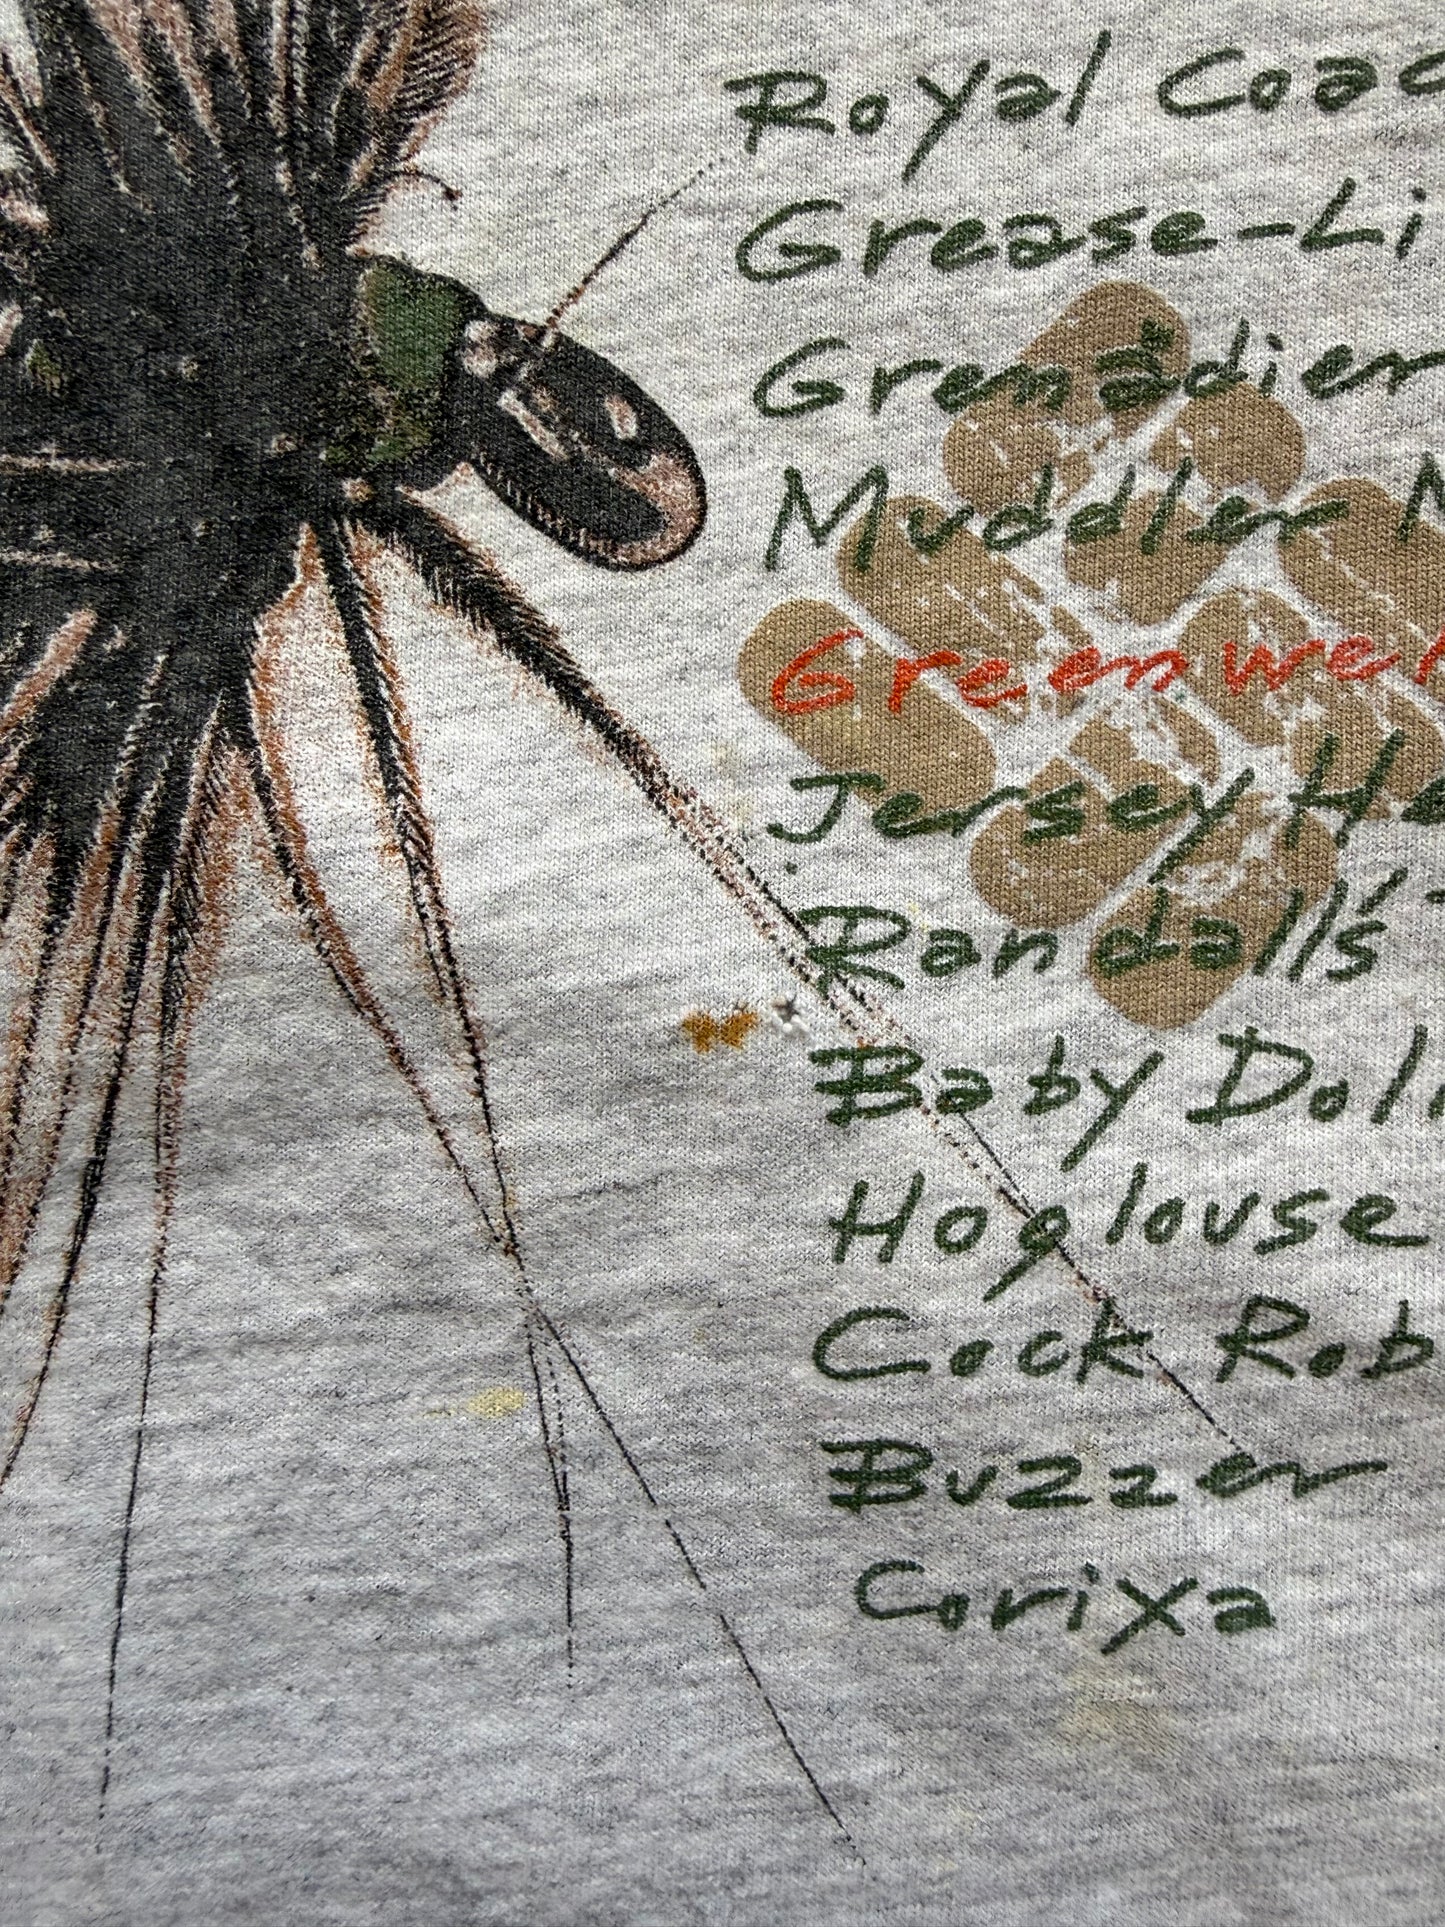 Royal Coac
Grease-Li
Grenadier
Muddler M
Greenwe
Jersey He
Randall's
Baby Doll
Hoglouse
Cock Rob
Buzzer
Corixa